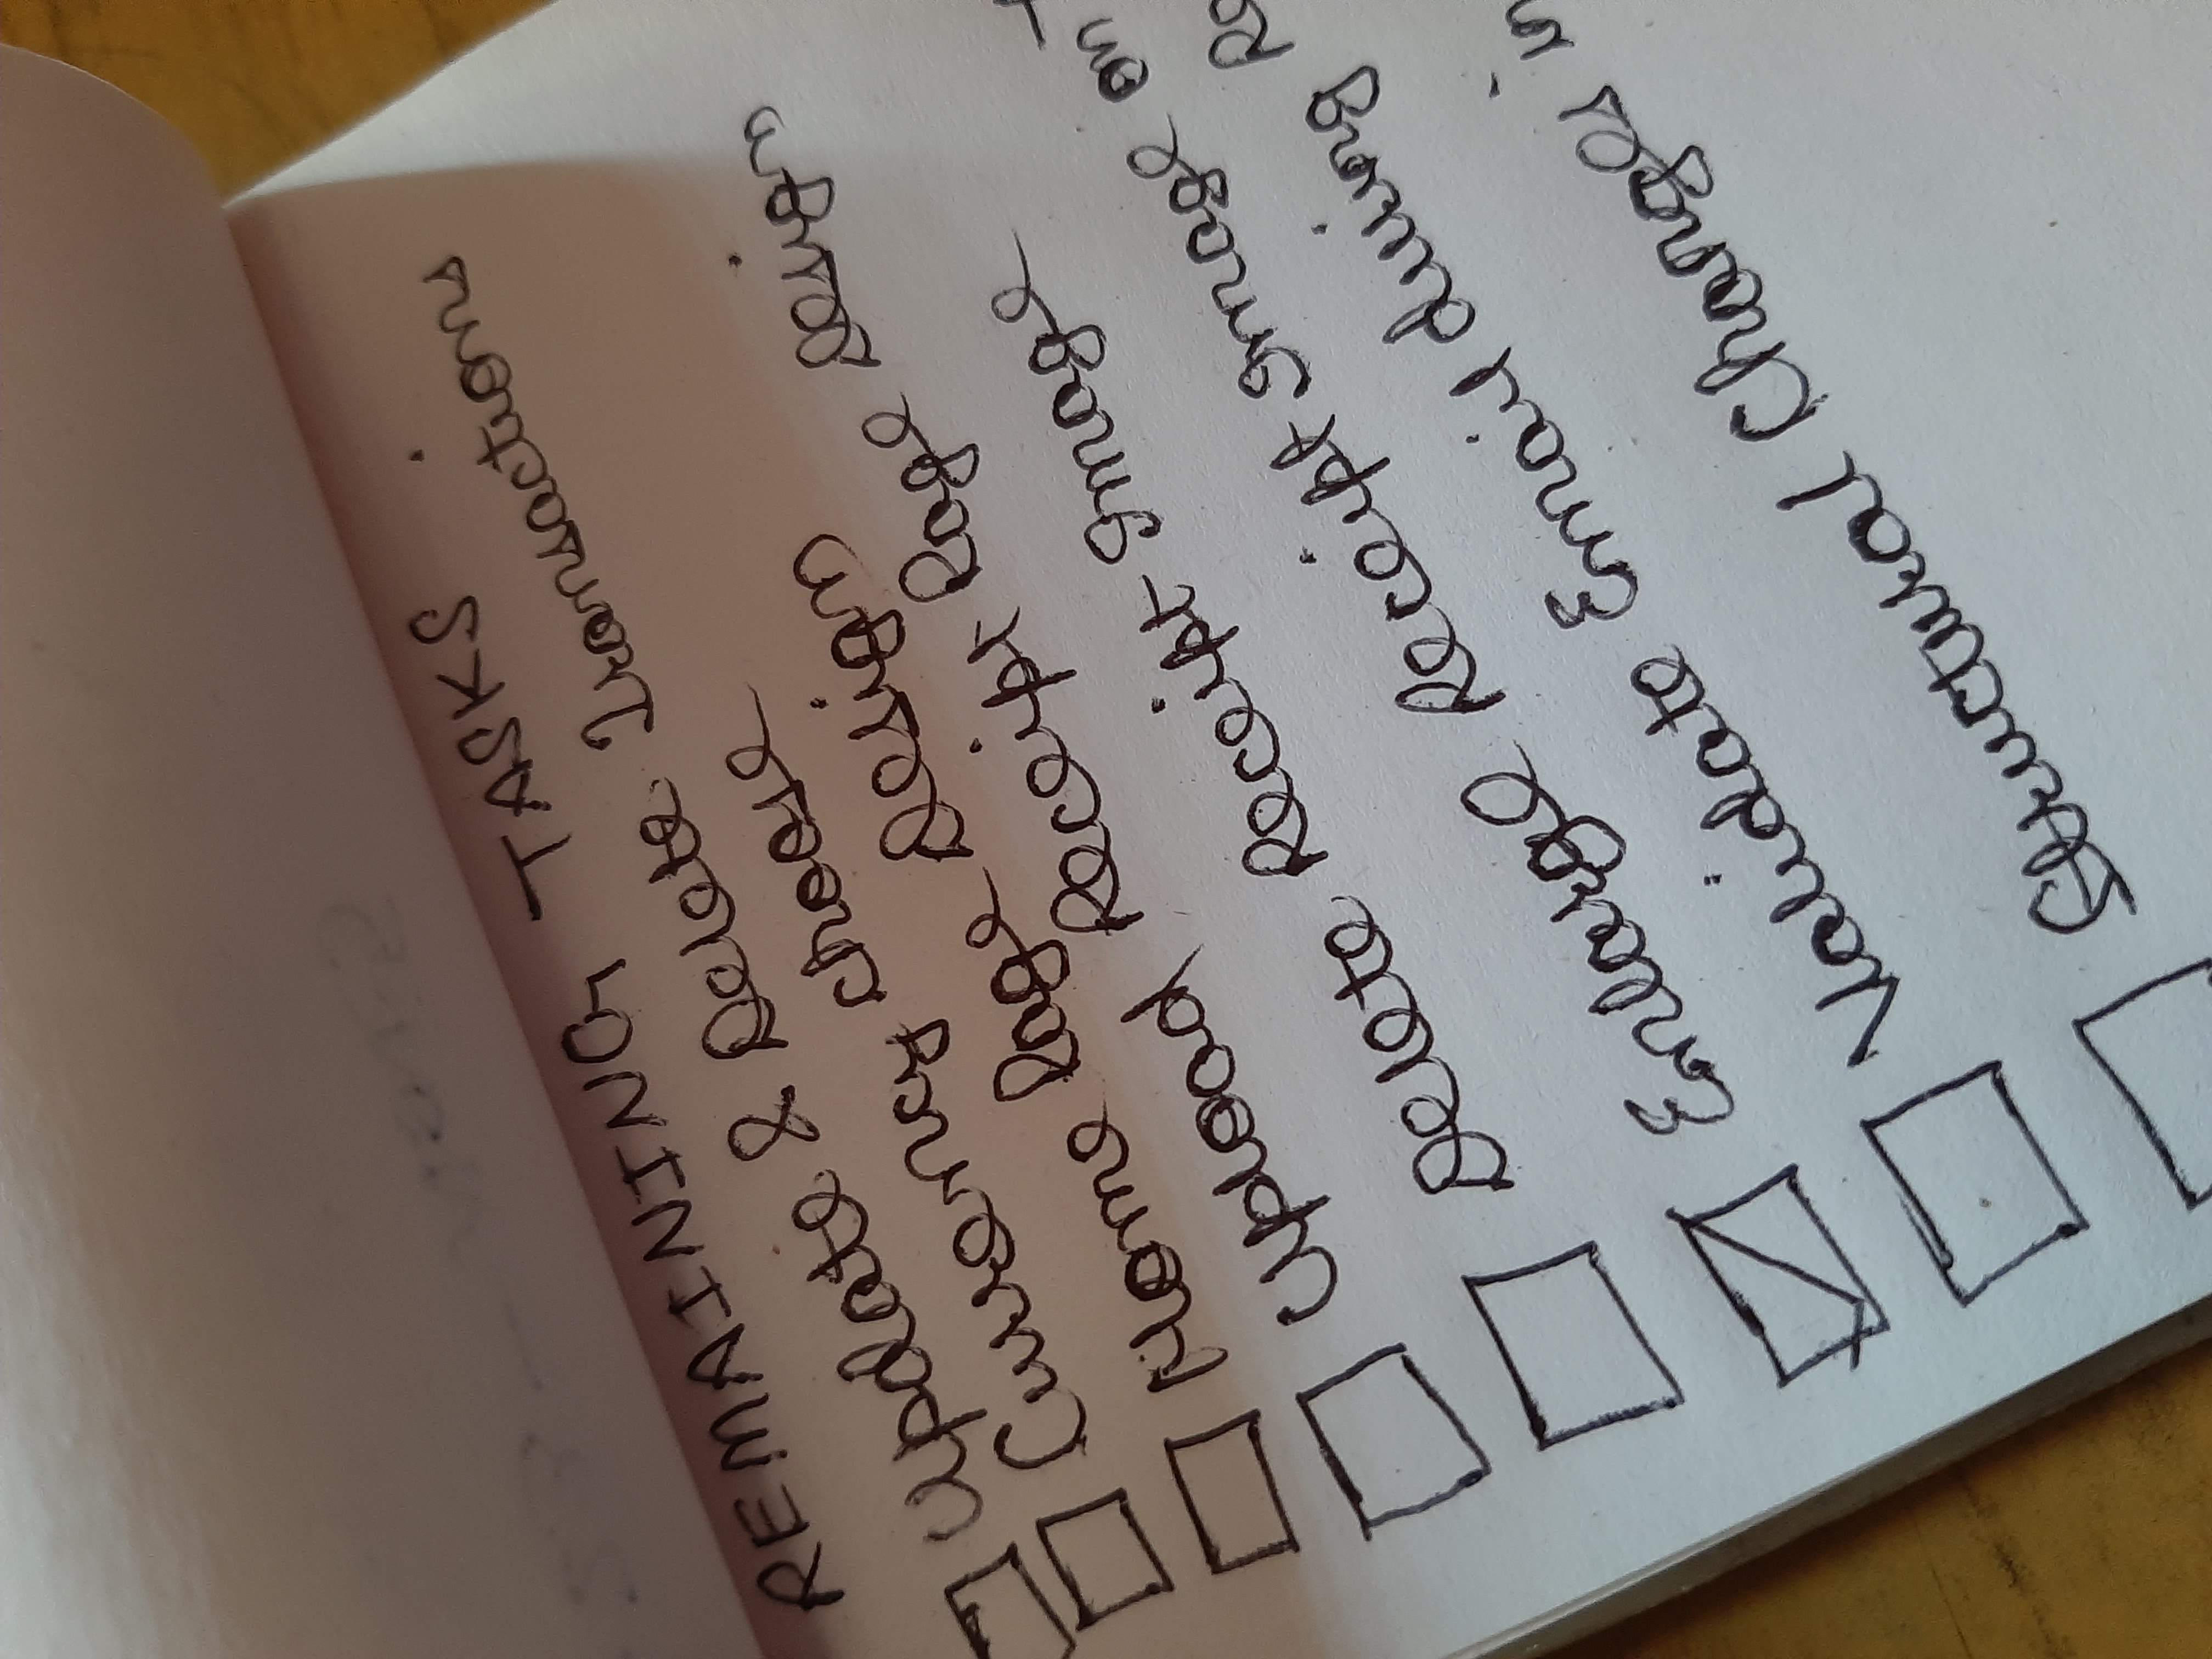 REMAINING TASKS
Update & Delete Transactions
Currency choose
Home Page Design
Upload Receipt Page Design
Delete Receipt Image
Enlarge Receipt Image on
Validate Email during Re
Structural Changes in